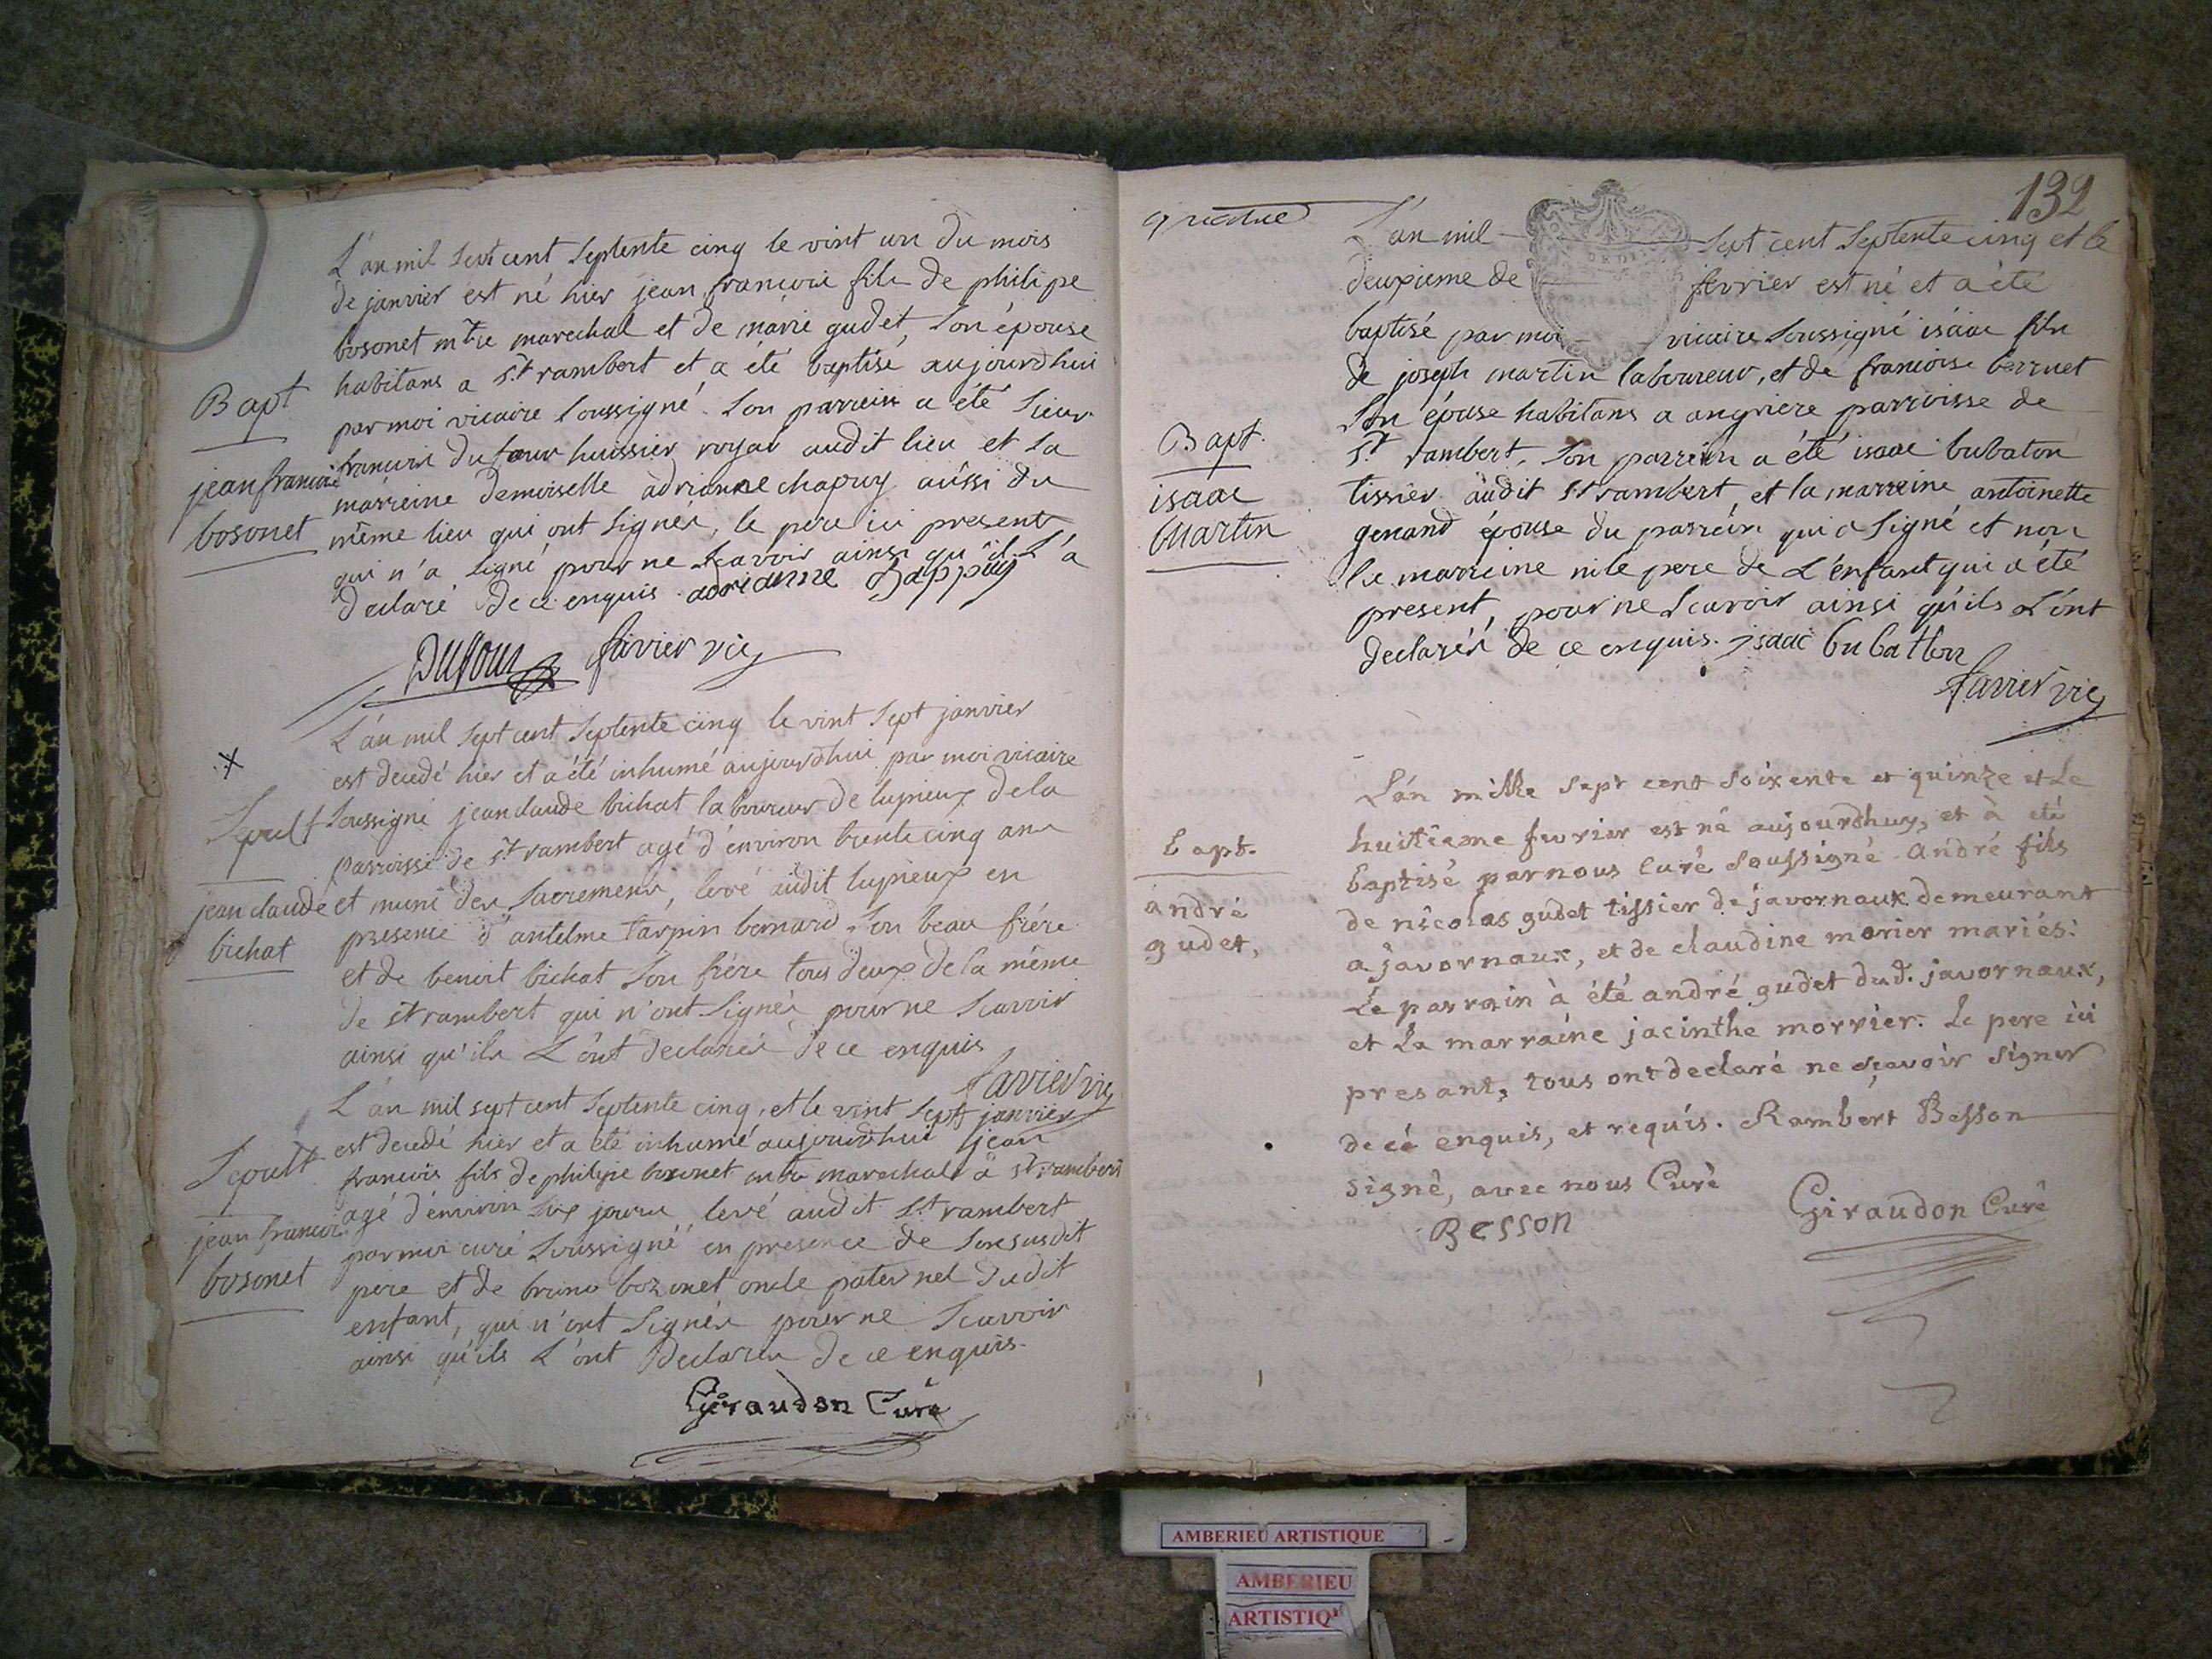 L'an mil sept cent septente cinq le vint un du mois
de janvier est né hier jean francois fils de philipe
bosonet mtre marechal et de marie gudet, son épouse
habitans a st rambert et a été baptisé aujourdhui
par moi vicaire soussigné. son parrein a été sieur
francois dufour huissier royal audit lieu et la
marreine demoiselle adrianne chapuy aussi du
même lieu qui ont signés, le pere ici present
qui n'a signé pour ne scavoir ainsi qu'il l'a
declaré de ce enquis. adrianne Chappuy
Dufour favier vic
Bapt
jean francois
bosonet
L'an mil sept cent septente cinq le vint sept janvier
est decedé hier et a été inhumé aujourdhui par moi vicaire
soussigné jean claude bichat laboureur de lupieux de la
parroisse de st rambert agé d'environ trente cinq ans
et muni des sacremens, levé audit lupieux en
presence d'antelme tarpin bernard son beau frére
et de benoit bichat son frére tous deux de la même
de st rambert qui n'ont signés pour ne scavoir
ainsi qu'ils l'ont declarés de ce enquis
favier vic
x
Sepult
jean claude
bichat
L'an mil sept cent septente cinq, et le vint sept janvier
est decedé hier et a été inhumé aujourdhui jean
francois fils de philipe bosonet mtre marechal à st rambert
agé d'environ six jours levé audit st rambert
par moi curé soussigné en presence de son susdit
pere et de bruno bozonet oncle paternel dudit
enfant, qui n'ont signés pour ne scavoir
ainsi qu'ils l'ont declarés de ce enquis.
Giraudon Curé
Sepult
jean francois
bosonet
132
L'an mil sept cent septente cinq et le
deuxieme de fevrier est né et a été
baptisé par moi vicaire soussigné isâac fils
de joseph martin laboureur, et de francoise berrnet
son épouse habitans a angriere parroisse de
st rambert, son parrein a été isaac bubaton
tissier audit st rambert, et la marreine antoinette
genand épouse du parrein qui a signé et non
la marreine ni le pere de l'enfant qui a été
present, pour ne scavoir ainsi qu'ils l'ont
declarés de ce enquis. isaac bubathon
favier vic
Bapt.
isaac
Martin
L'an mille sept cent soixente et quinze et le
huitieme fevrier est né aujourdhuy, et à eté
baptisé par nous curé soussigné andré fils
de nicolas gudet tissier de javornaux demeurant
a javornaux, et de claudine morier mariés:
Le parrain à été andré gudet dud. javornaux,
et la marraine jacinthe morrier. Le pere ici
present, tous ont declaré ne sçavoir signer
de cé enquis, et requis. Rambert Besson
signé, avec nous Curé
Besson Giraudon Curé
bapt.
andré
gudet,
AMBERIEU ARTISTIQUE
AMBERIEU
ARTISTIQ